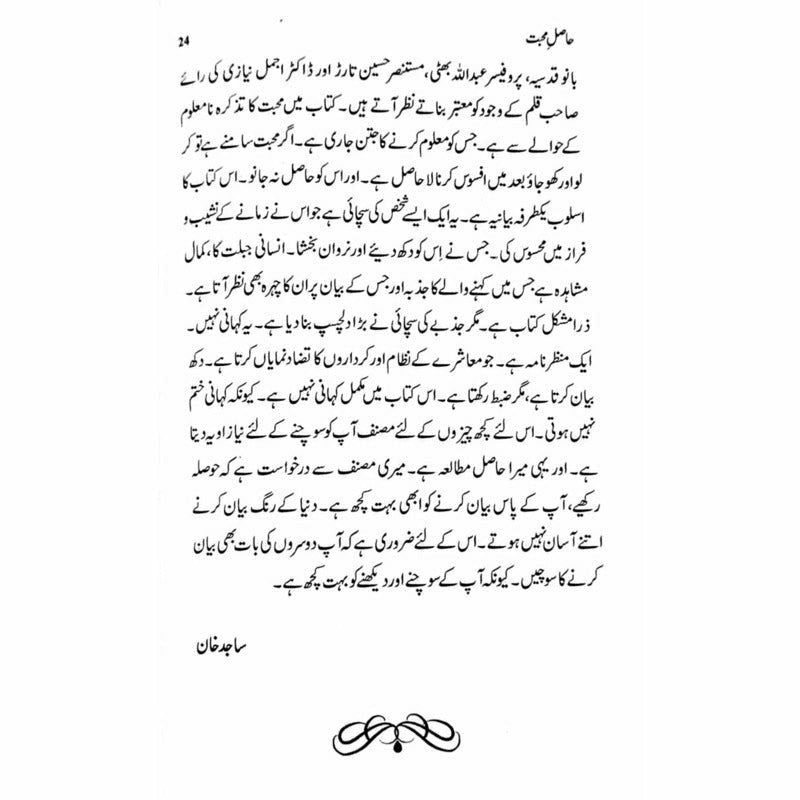 حاصلِ محبت
24
بانو قدسیہ، پروفیسر عبداللہ بھٹی، مستنصر حسین تارڑ اور ڈاکٹر اجمل نیازی کی رائے
صاحب قلم کے وجود کو معتبر بناتے نظر آتے ہیں۔ کتاب میں محبت کا تذکرہ نامعلوم
کے حوالے سے ہے۔ جس کو معلوم کرنے کا جتن جاری ہے۔ اگر محبت سامنے ہے تو کر
لو اور کھو جاؤ بعد میں افسوس کرنا لا حاصل ہے۔ اور اس کو حاصل نہ جانو۔ اس کتاب کا
اسلوب یکطرفہ بیانیہ ہے۔ یہ ایک ایسے شخص کی سچائی ہے جو اس نے زمانے کے نشیب و
فراز میں محسوس کی۔ جس نے اِس کو دکھ دیئے اور نروان بخشا۔ انسانی جبلت کا، کمال
مشاہدہ ہے جس میں کہنے والے کا جذبہ اور جس کے بیان پر ان کا چہرہ بھی نظر آتا ہے۔
ذرا مشکل کتاب ہے۔ مگر جذبے کی سچائی نے بڑا دلچسپ بنا دیا ہے۔ یہ کہانی نہیں۔
ایک منظر نامہ ہے۔ جو معاشرے کے نظام اور کرداروں کا تضاد نمایاں کرتا ہے۔ دکھ
بیان کرتا ہے، مگر ضبط رکھتا ہے۔ اس کتاب میں مکمل کہانی نہیں ہے۔ کیونکہ کہانی ختم
نہیں ہوتی۔ اس لئے کچھ چیزوں کے لئے مصنف آپ کو سوچنے کے لئے نیا زاویہ دیتا
ہے۔ اور یہی میرا حاصل مطالعہ ہے۔ میری مصنف سے درخواست ہے کہ حوصلہ
رکھیے، آپ کے پاس بیان کرنے کو ابھی بہت کچھ ہے۔ دنیا کے رنگ بیان کرنے
اتنے آسان نہیں ہوتے۔ اس کے لئے ضروری ہے کہ آپ دوسروں کی بات بھی بیان
کرنے کا سوچیں۔ کیونکہ آپ کے سوچنے اور دیکھنے کو بہت کچھ ہے۔
ساجد خان